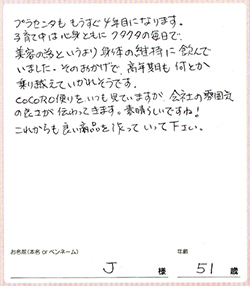 プラセンタも もうすぐ4年目になります。
子育て中は心身ともにクタクタの毎日で、
美容の為というより身体の維持に飲んで
いました。そのおかげで、高年期も何とか
乗り越えていかれそうです。
COCORO便りをいつも見ていますが、会社の雰囲気
の良さが伝わってきます。素晴らしいですね！
これからも良い商品を作っていって下さい。
お名前(本名 or ペンネーム) 年齢
J 様 51 歳